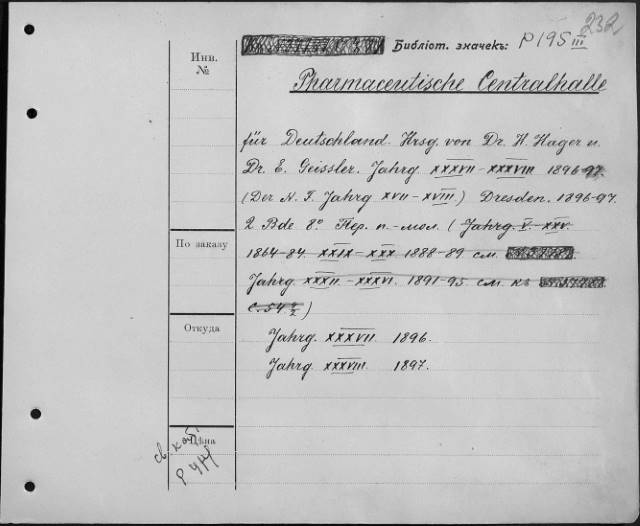 232
Библіот. значекъ: P 195 III
Инв.
№
Pharmaceutische Centralhalle
für Deutschland. Hrsg. von Dr. H. Hager u.
Dr. E. Geissler. Jahrg. XXXVII–XXXVIII 1896-97.
(Der N. F. Jahrg XVII–XVIII.) Dresden. 1896-97.
2 Bde 8° Пер. п.-мол. (Jahrg. V.–XXV.
1864-84. XXIX–XXX 1888-89 см.
По заказу
Jahrg. XXXII.–XXXVI. 1891-95 см. къ
с. 54 )
Откуда
Jahrg. XXXVII. 1896.
Jahrg. XXXVIII. 1897.
Цѣна
св. каб.